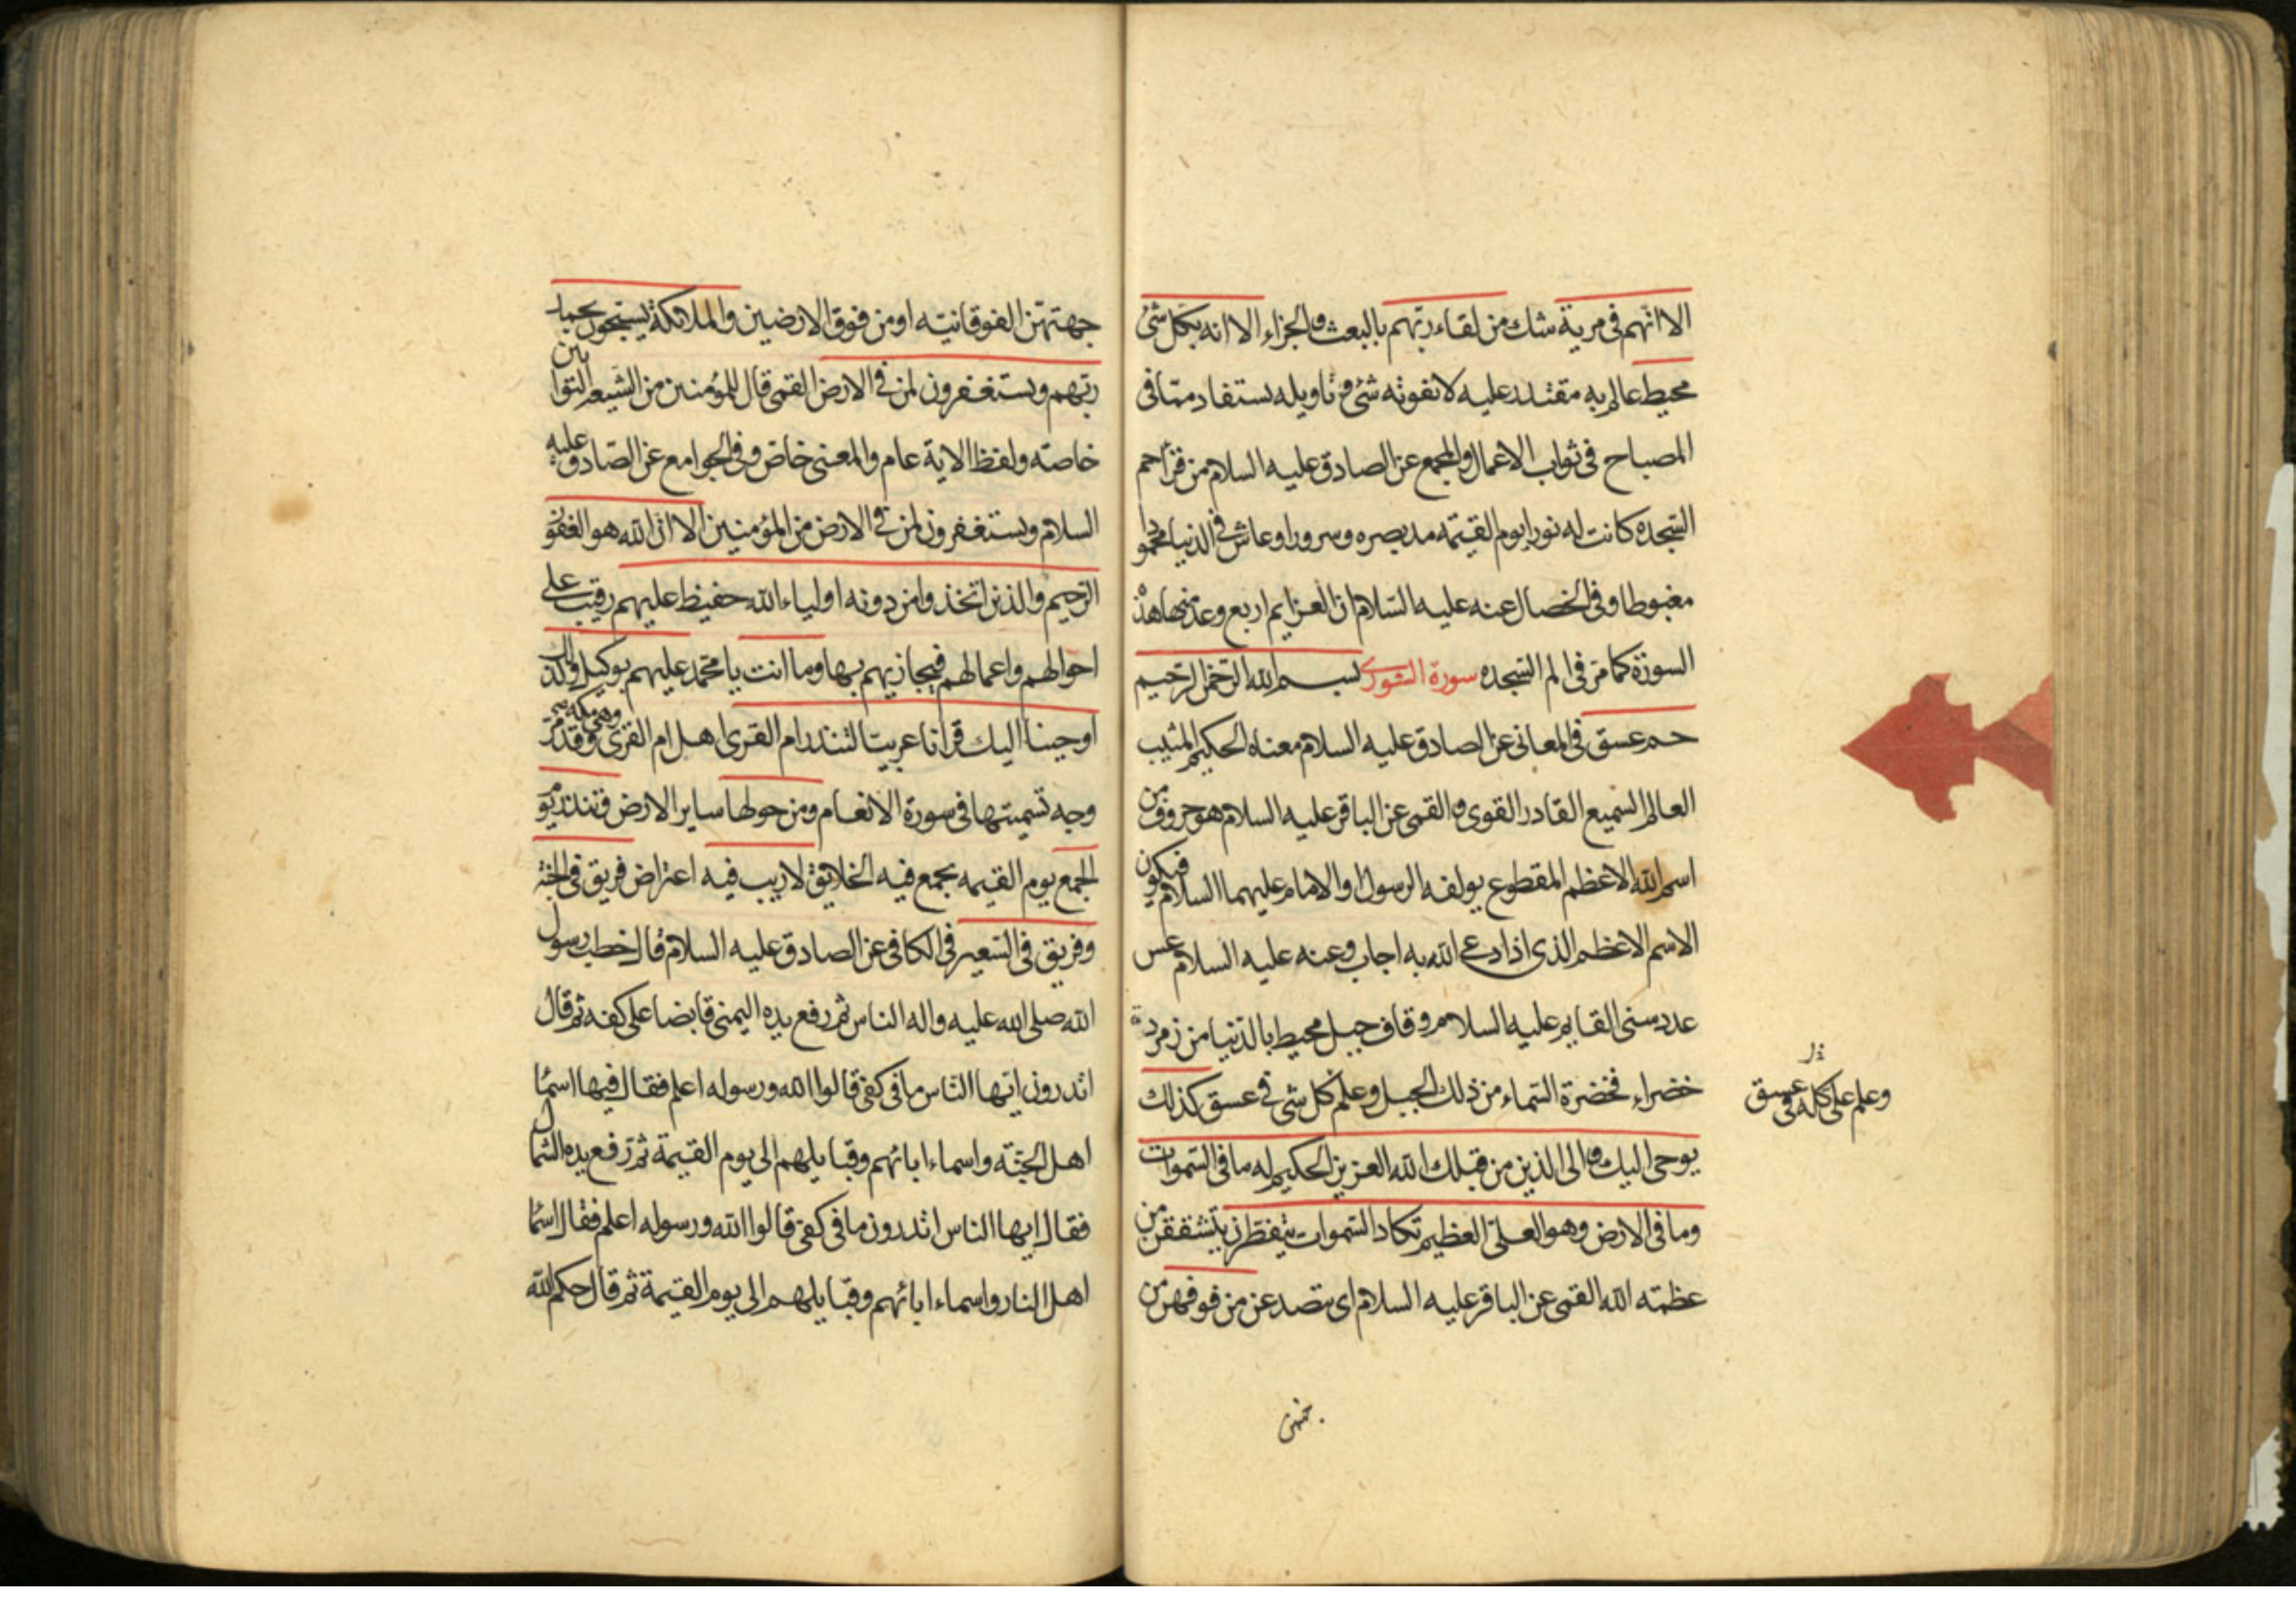 الا انهم فى مرية شك من لقاء ربهم بالبعث والجزاء الا انه بكل شئ
محيط عالم به مقتدر عليه لا يفوته شئ تاويله يستفاد مما فى
المصباح فى ثواب الاعمال والمجمع عن الصادق عليه السلام من قرأ حم
السجده كانت له نورا يوم القيمه مد بصره وسرورا وعاش فى الدنيا محمودا
مغبوطا وفى الخصال عنه عليه السلام ان العزايم اربع وعد منها هذه
السورة كما مر فى الم السجده سورة الشورى بسم الله الرحمن الرحيم
حم عسق فى المعانى عن الصادق عليه السلام معناه الحكيم المثيب
العالم السميع القادر القوى والقمى عن الباقر عليه السلام هو حروف من
اسم الله الاعظم المقطوع يولفه الرسول او الامام عليهما السلام فيكون
الاسم الاعظم الذى اذا دعى الله به اجاب وعنه عليه السلام عسق
عدد سنى القايم عليه السلام وقاف جبل محيط بالدنيا من زمردة
خضراء فخضرة السماء من ذلك الجبل وعلم كل شى فى عسق كذلك
وعلم على كله فى عسق
يوحى اليك والى الذين من قبلك الله العزيز الحكيم له ما فى السموات
وما فى الارض وهو العلى العظيم تكاد السموات يتفطرن يتشققن من
عظمته الله القمى عن الباقر عليه السلام اى يتصدعن من فوقهن من
جهتهن
جهتهن الفوقانيته او من فوق الارضين والملائكة يسبحون بحمد
ربهم ويستغفرون لمن فى الارض القمى قال للمؤمنين من الشيعه التوابين
خاصته ولفظ الاية عام والمعنى خاص وفى الجوامع عن الصادق عليه
السلام ويستغفرون لمن فى الارض من المؤمنين الا ان الله هو الغفور
الرحيم والذين اتخذوا من دونه اولياء الله حفيظ عليهم رقيب على
احوالهم واعمالهم فيجازيهم بها وما انت يا محمد عليهم بوكيل وكذلك
اوحينا اليك قرانا عربيتا لتنذر ام القرى اهل ام القرى وهى مكه وقد مر
وجه تسميتها فى سورة الانعام ومن حولها ساير الارض وتنذر يوم
الجمع يوم القيمه يجمع فيه الخلايق لا ريب فيه اعتراض فريق فى الجنة
وفريق فى السعير فى الكافى عن الصادق عليه السلام قال خطب رسول
الله صلى الله عليه واله الناس ثم رفع يده اليمنى قابضا على كفه ثم قال
اتدرون ايها الناس ما فى كفى قالوا الله ورسوله اعلم فقال فيها اسماء
اهل الجنة واسماء ابائهم وقبايلهم الى يوم القيمة ثم رفع يده الشمال
فقال ايها الناس اتدرون ما فى كفى قالوا الله ورسوله اعلم فقال اسماء
اهل النار واسماء ابائهم وقبايلهم الى يوم القيمة ثم قال حكم الله